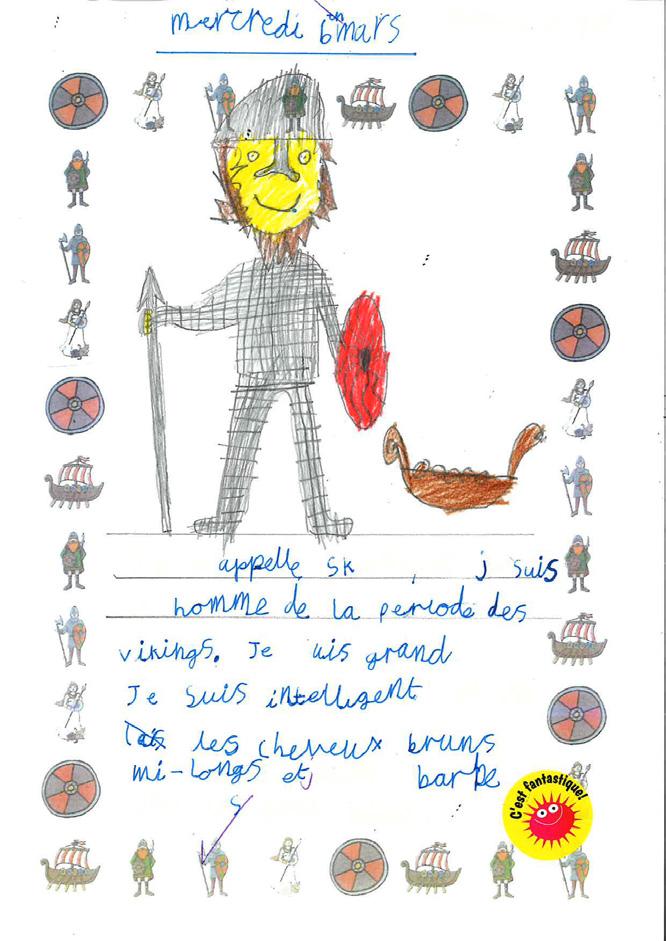 mercredi 6 mars
appelle sk , j suis
homme de la periode des
vikings. Je uis grand
Je suis intelligent
les cheveux bruns
mi-longs et barbe
C'est fantastique!